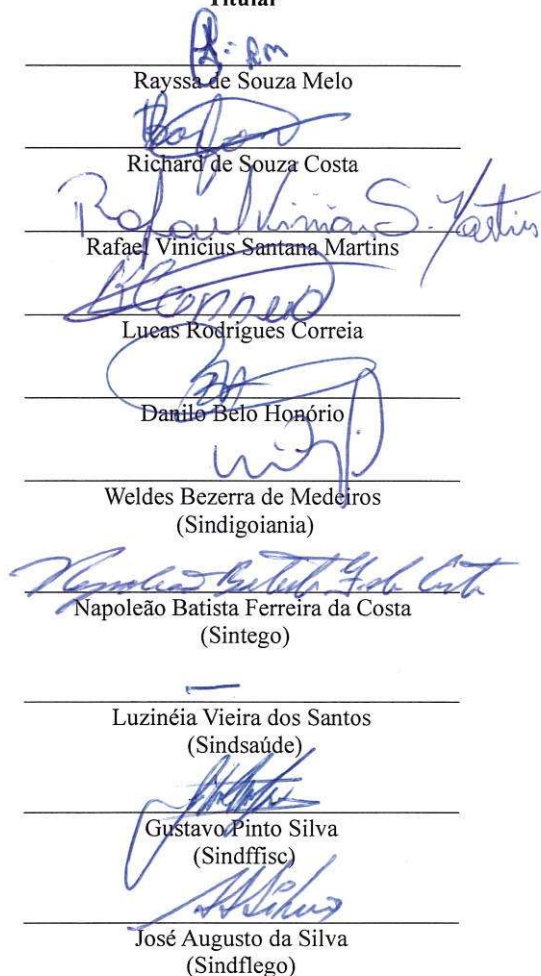 Titular
R. RM
Rayssa de Souza Melo
Richard de Souza Costa
Rafael Vinicius S. Martins
Rafael Vinicius Santana Martins
Correia
Lucas Rodrigues Correia
Danilo Belo Honório
Weldes Bezerra de Medeiros
(Sindigoiania)
Napoleão Batista F. da Costa
Napoleão Batista Ferreira da Costa
(Sintego)
Luzinéia Vieira dos Santos
(Sindsaúde)
Gustavo Pinto Silva
(Sindffisc)
José Augusto da Silva
(Sindflego)